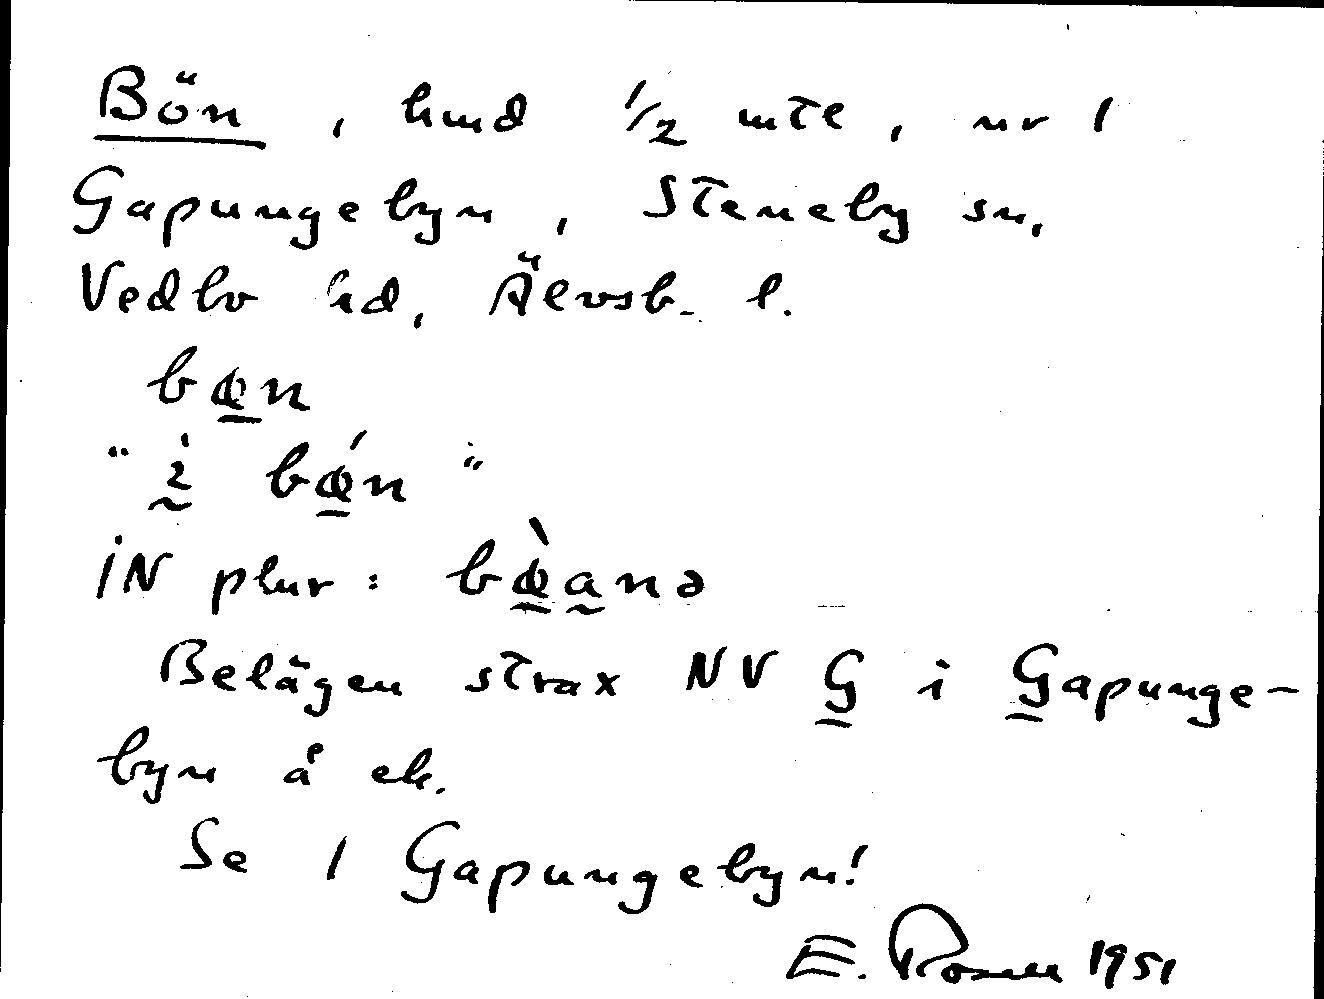 Bön, hmd 1/2 mtl, nr 1
Gapungebyn, Steneby sn,
Vedbo hd, Älvsb. l.
bœn
"i̇ bœ́n"
IN plur: bœ̀anə
Belägen strax NV G i Gapunge-
byn å ek.
Se 1 Gapungebyn!
E. Rosell 1951